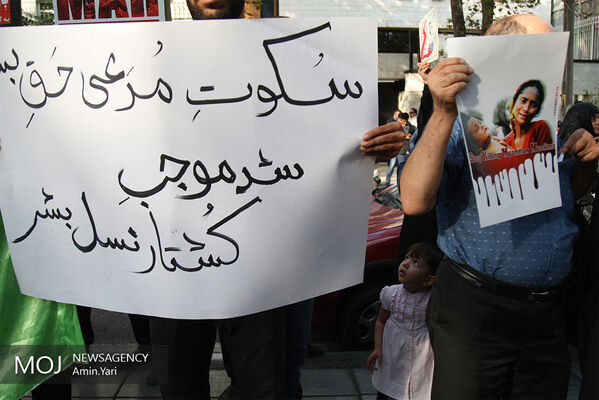 سکوتِ مُدّعی حَقِ بـ
شد موجبِ
کُشتارِ نسل بشر
MOJ NEWSAGENCY
Amin.Yari